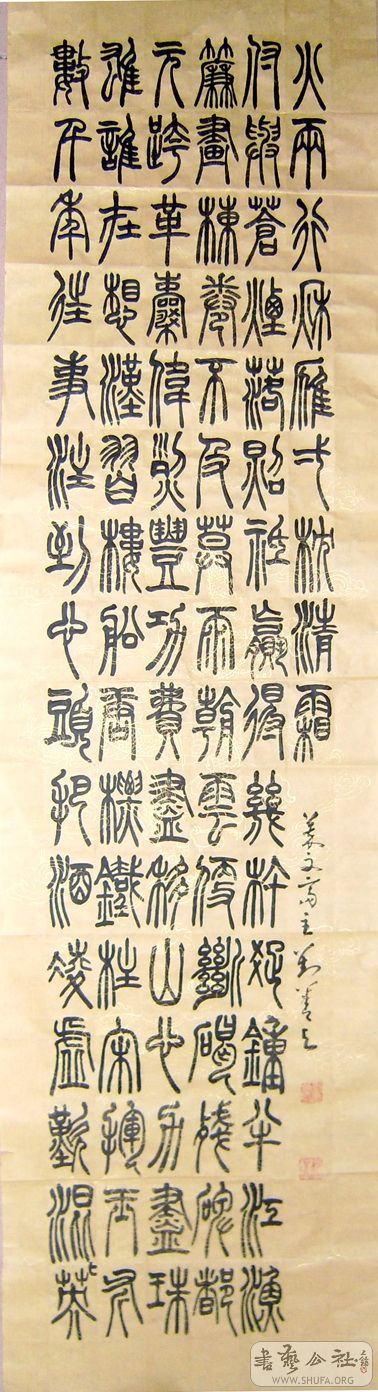 數千年往事注到心頭把酒凌虛歎混混英
雄誰在想漢習樓船唐標鐵柱宋揮玉斧
元跨革囊偉烈豐功費盡移山心力盡珠
簾畫棟卷不及暮雨朝雲便斷碣殘碑都
付與蒼煙落照祗贏得幾杵疑鐘半江漁
火兩行秋雁弌枕清霜
書藝公社
WWW.SHUFA.ORG